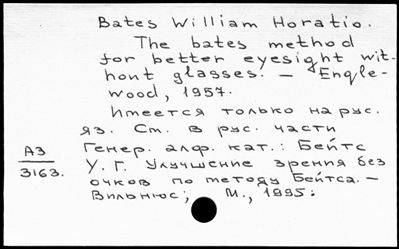 Bates William Horatio.
The bates method
for better eyesight wit-
hont glasses. – Engle-
wood, 1957.
Имеется только на рус.
яз. См. в рус. части
Генер. алф. кат.: Бейтс
У. Г. Улучшение зрения без
очков по методу Бейтса. –
Вильнюс; М., 1995:
А3
3163.